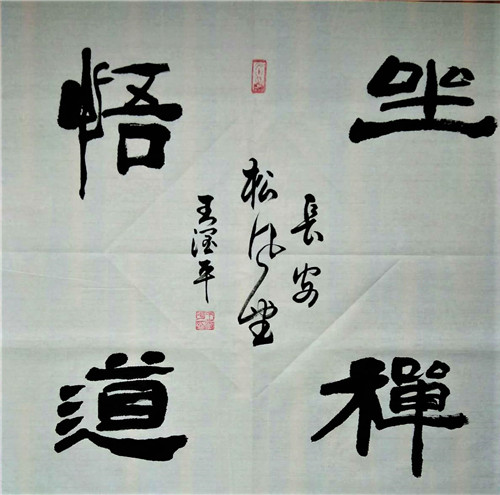 坐禪
悟道
長安
松風堂
王澤平